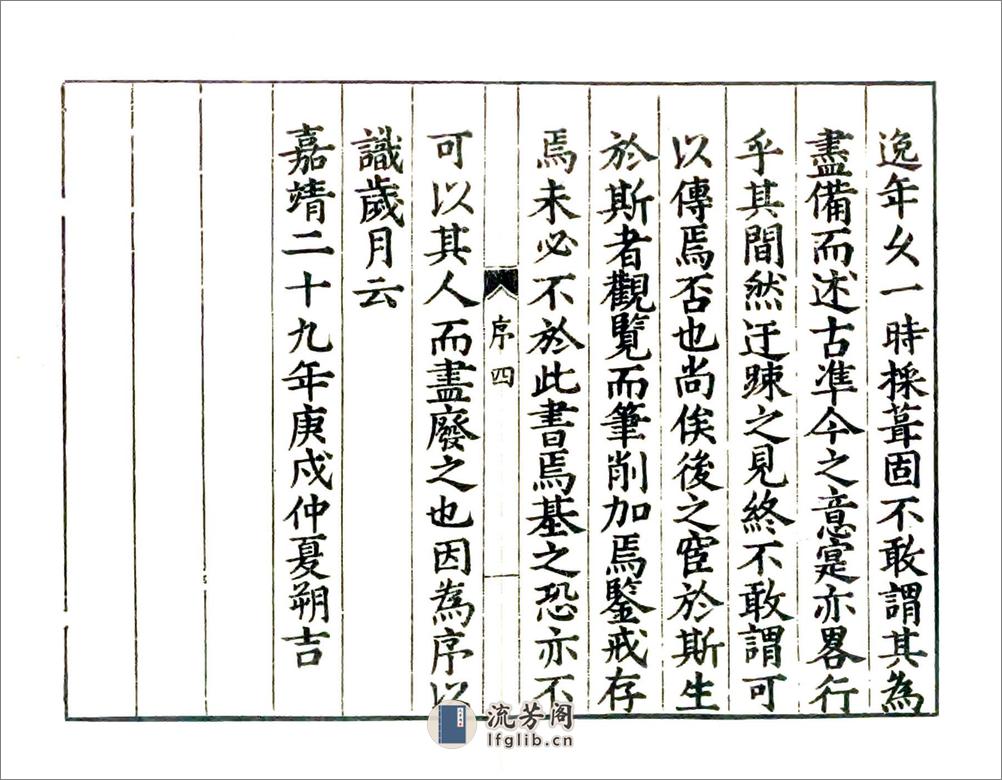 逸年久一時採葺固不敢謂其為
盡備而述古準今之意寔亦畧行
乎其間然迂踈之見終不敢謂可
以傳焉否也尚俟後之宦於斯生
於斯者觀覽而筆削加焉鑒戒存
焉未必不於此書焉基之恐亦不
序四
可以其人而盡廢之也因為序以
識歲月云
嘉靖二十九年庚戌仲夏朔吉
流芳阁
lfglib.cn